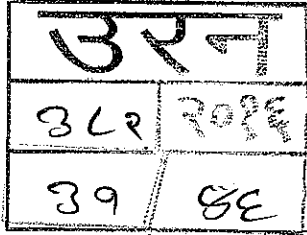 उरन
३८२ २०१६
३१ ४६